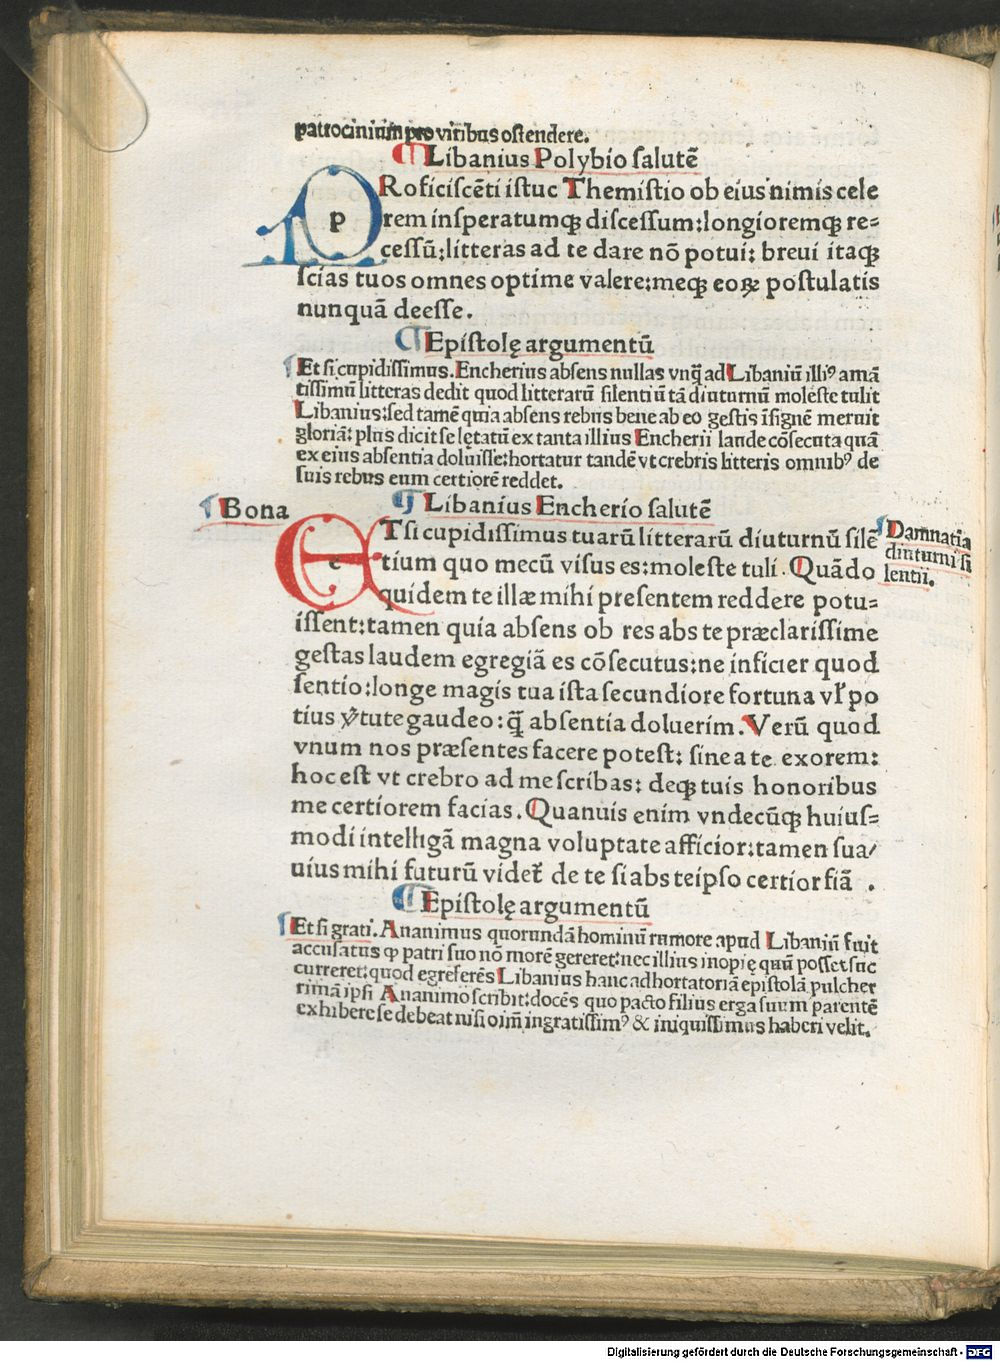 patrocinium pro viribus ostendere.
¶ Libanius Polybio salutē
PRoficiscēti istuc Themistio ob eius nimis cele
p
rem insperatumqꝫ discessum: longioremqꝫ re=
cessū; litteras ad te dare nō potui: breui itaqꝫ
scias tuos omnes optime valere: meqꝫ eoꝝ postulatis
nunquā deesse.
¶ Epistolę argumentū
¶ Et si cupidissimus. Encherius absens nullas vnq̄ ad Libaniū illiꝰ amā
tissimū litteras dedit quod litterarū silentiū tā diuturnū moleste tulit
Libanius: sed tamē quia absens rebus bene ab eo gestis īsignē meruit
gloriā: plus dicit se lętatū ex tanta illius Encherii laude cōsecuta quā
ex eius absentia doluisse: hortatur tandē vt crebris litteris omnibꝰ de
suis rebus eum certiorē reddet.
¶ Bona
¶ Libanius Encherio salutē
ETsi cupidissimus tuarū litterarū diuturnū silē
e
tium quo mecū visus es: moleste tuli. Quādo
quidem te illæ mihi presentem reddere potu=
issent: tamen quia absens ob res abs te præclarissime
gestas laudem egregiā es cōsecutus: ne inficier quod
sentio: longe magis tua ista secundiore fortuna vl̓ po
tius v̓tute gaudeo: q̄ absentia doluerim. Verū quod
vnum nos præsentes facere potest: sine a te exorem:
hoc est vt crebro ad me scribas: deqꝫ tuis honoribus
me certiorem facias. Quanuis enim vndecūqꝫ huius=
modi intelligā magna voluptate afficior: tamen sua/
uius mihi futurū videt᷑ de te si abs teipso certior fiā .
¶ Damnatia
diuturni si
lentii.
¶ Epistolę argumentū
¶ Et si grati. Ananimus quorundā hominū rumore apud Libaniū fuit
accusatus ꝙ patri suo nō morē gereret: nec illius inopię quū posset suc
curreret: quod egre ferēs Libanius hanc adhortatoriā epistolā pulcher
rimā ipsi Ananimo scribit: docēs quo pacto filius erga suum parentē
exhibere se debeat nisi oīm ingratissimꝰ & iniquissimus haberi velit.
Digitalisierung gefördert durch die Deutsche Forschungsgemeinschaft - DFG